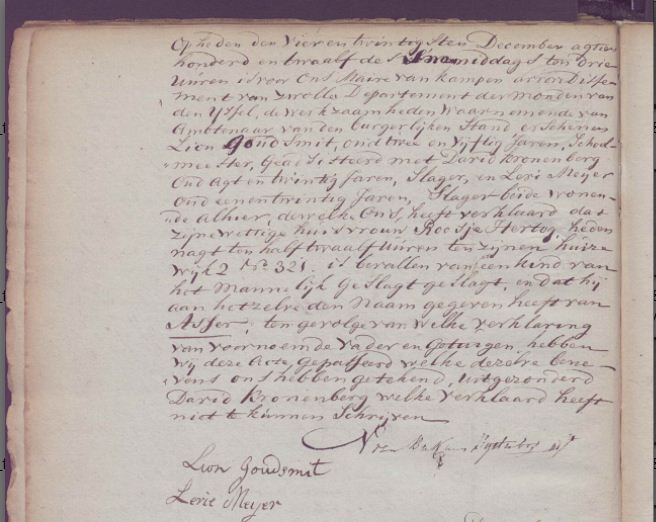 Op heden den Vier en twintig sten December agtien
honderd en twaalf de s Namiddags ten drie
uuren is voor Ons Maire van Kampen arrondisse-
ment van Zwolle Departement der Monden van
den Yssel, de werkzaamheden waarnemende van
Ambtenaar van den burgerlijken Stand, erschenen
Lion Goudsmit, oud twee en Vyftig Jaren, School-
meester, Geadsisteerd met David Kronenberg
Oud agt en twintig Jaren, Slager, en Levi Meyer
oud een en twintig Jaren, Slager beide wonen-
de Alhier, dewelke Ons, heeft verklaard dat
zijne wettige huisvrouw Roosje Hertog, heden
nagt ten half twaalf uuren ten zijnen huize
wyk 2 No 321. is bevallen van een kind van
het Mannelijk Geslagt geslagt, en dat hij
aan hetzelve den Naam gegeven heeft van
Asser, ten gevolge van welke verklaring
van voornoemde Vader en Getuigen hebben
Wij deze Acte gepasseerd welke dezelve bene-
vens ons hebben getekend, uitgezonderd
David Kronenberg welke verklaard heeft
niet te kunnen Schrijven
Lion Goudsmit
Levie Meijer